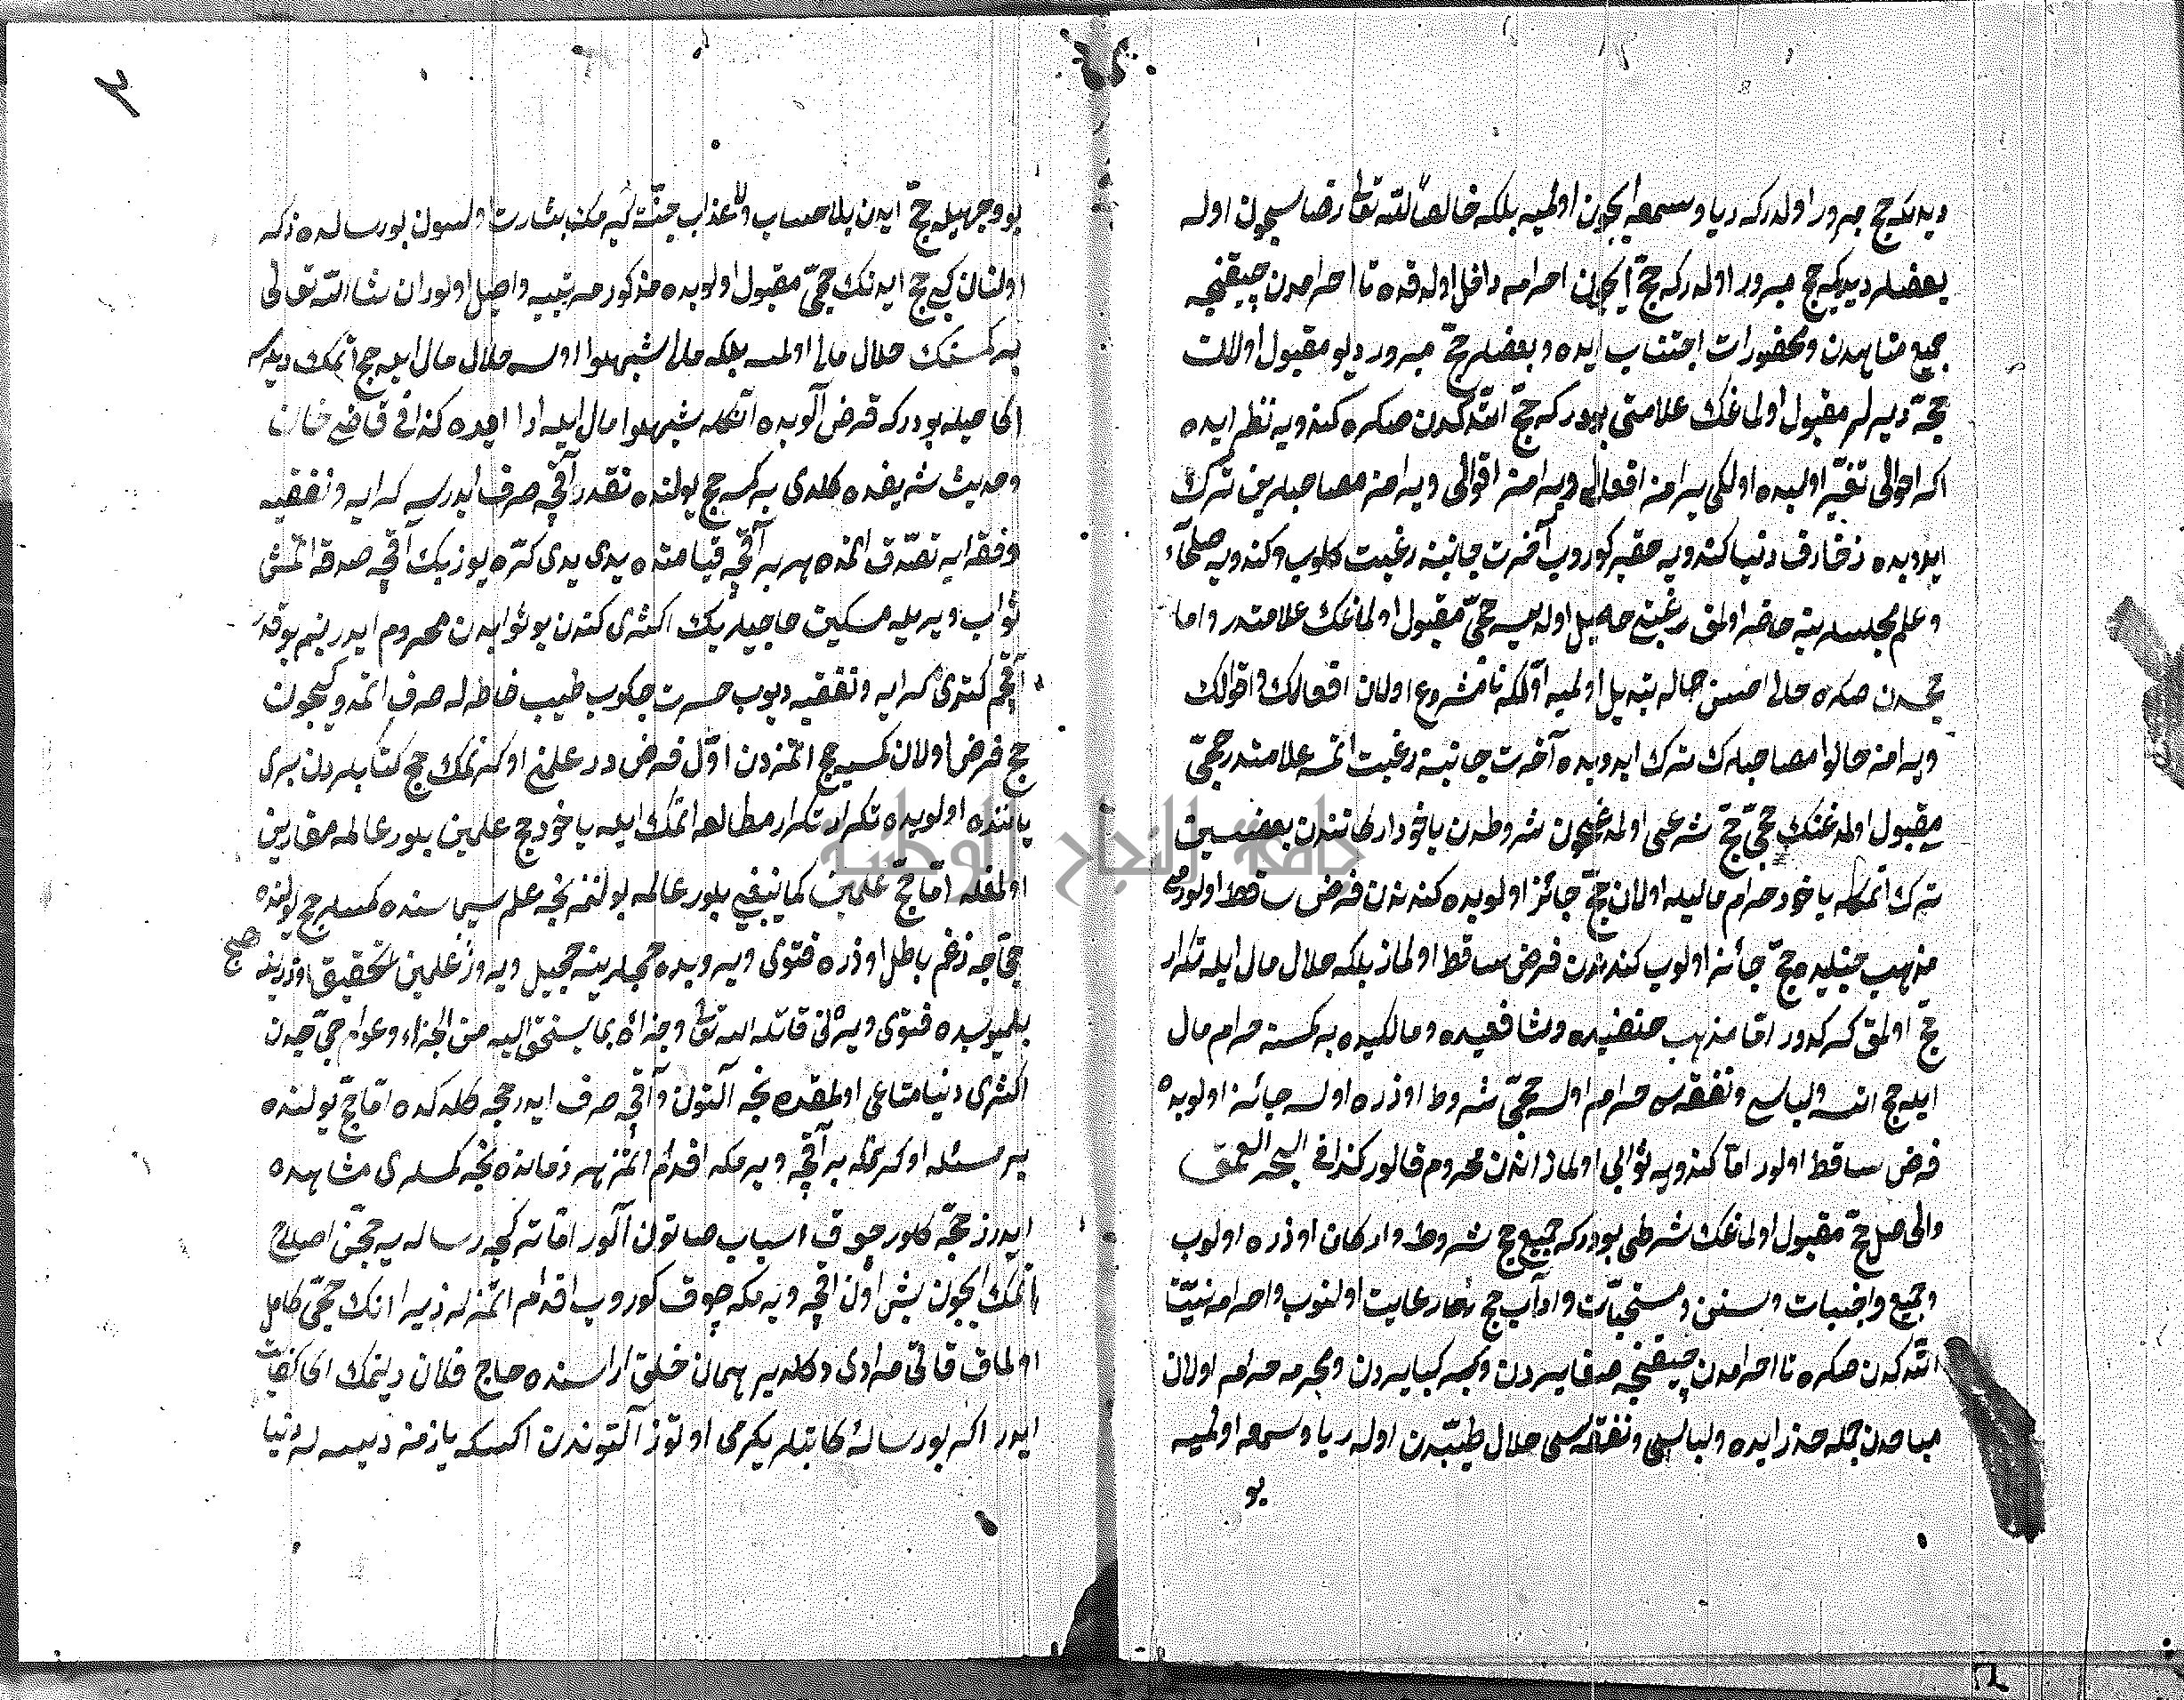 ديديكه حج مبرور اولدركه ريا وسمعه ايچون اولميه بلكه خالصا لله تعالى رضاسيچون اوله
بعضلر ديديكه حج مبرور اولدركه حج ايچون احرامه داخل اولدقده تا احرامدن چيقنجه
جميع مناهيدن ومحظورات اجتناب ايده وبعضلر حج مبرور ديو مقبول اولان
حجه ديرلر مقبول اولماغك علامتى بودركه حج اتدكدن صكره كندويه نظر ايده
اكر احوالى تغير اوليده اولكى يرامز افعالى ويرامز اقوالى ويرامز مصاحبلرين ترك
ايدوبده زخارف دنيا كندويه حقير كورونوب آخرت جانبنه رغبت كلوب وكندويه صلحاء
وعلم مجلسلرينه حاضر اولمق رغبتى حاصل اولديسه حجى مقبول اولماغك علامتدر واما
حجدن صكره حالى احسن حاله تبديل اولميه اولكى نامشروع اولان افعالك واقوالك
ويرامز حالوا مصاحبلرك ترك ايدوبده آخرت جانبنه رغبت اتمسه علامتدر حجى
مقبول اولمدغنك حجى حج شرعى اولمدغيچون شروطدن ياخود اركانندن بعضيسين
ترك اتمكله ياخود حرام ماليله اولان حج جائز اولوبده كندندن فرض ساقط اولورمى
مذهب حنبليده حج جائز اولوب كندندن فرض ساقط اولماز بلكه حلال مال ايله تكرار
حج اولمق كركدور اما مذهب حنفيده وشافعيده ومالكيده بر كسنه حرام مال
ايله حج اتسه ولباسى ونفقه سى حرام اولسه حجى شروط اوزره اولسه جائز اولوبده
فرض ساقط اولور اما كندويه ثوابى اولماز اندن محروم قالور كذا فى البحر العميق
والحاصل حج مقبول اولماغك شرطى بودركه جميع حج شروط واركان اوزره اولوب
وجميع واجبات وسنن ومستحبات وآداب حج رعايت اولنوب واحرامه نيت
اتدكدن صكره تا احرامدن چيقنجه صغايردن وكبايردن ومحرمه حرام اولان
مباحدن جمله حذر ايده ولباسى ونفقه سى حلال طيبدن اوله ريا وسمعه اولميه
بو
٣
بو وجهيله حج ايدن بلا حساب ولا عذاب جنته كيرمكه بشارت اولسون بو رسالده ذكر
اولنان كبى حج ايدنك حجى مقبول اولوبده مذكور مرتبيه واصل اولور ان شاء الله تعالى
بر كسنك حلال مالى اولمسه بلكه مالى شبهلوا اولسه حلال مال ايله حج اتمك ديلسه
اكا حيله بودركه قرض آلوبده انكله شبهلوا مال ايله ادا ايده كذا فى قاضيخان
وحديث شريفده كلدى بر كسه حج يولنده نقدر آقچه صرف ايدرسه كرايه ونفقيه
وفقرايه تصدق اتمده هر بر آقچه قيامتده يدى يدى كره يوز بيك آقچه صدقه اتمش
ثواب ويريله مسكين حاجيلريك اكثرى كندن بو ثوابدن محروم ايدر نيم بو قدر
آقچم كتدى كرايه ونفقيه ديوب حسرت چكوب طيب خاطرله صرف اتمدوكيچون
حج فرض اولان كسيه حج اتمزدن اول فرض در علمنى اوكرنمك حج كتابلردن برى
ياننده اولوبده تكرار تكرار مطالعه اتمك ايله ياخود حج علمين بلور عالمه مقارين
اولمغله اما حج علمين كما ينبغى بلور عالمه بولنمز نجه علم سيماسنده كمسلر حج يولنده
حجاجه زعم باطل اوزره فتوى ويروبده حجلرينه تحجيل ويرورز علمين تحقيق اوزرينه صح
بلميوبده فتوى ويرنى قاتله الله تعالى وجزاه بما يستحق اليه من الجزاء وعوام حجاجدن
اكثرى دنيا متاعى اولمقده نجه آلتون وآقچه صرف ايدر حجه كلدكده اما حج يولنده
بر مسئله اوكرنمكه بر آقچه ويرمكه اقدام اتمز هر زمانده نجه كمسلرى مشاهده
ايدرز حجه كلور چوق اسباب صاتون آلور اما ترمكجه رسالهيه حجن اصلاح
اتمك ايچون بش اون اقچه ويرمكه چوق كوروب اقدام اتمزلر زيرا انك حجى كامل
اولماق قاتى مرادى دكلدير همان خلق اراسنده حاج فلان دينمك اكا كفايت
ايدر اكر بو رسالهٔ كاتبلر يكرمى اوتوز آلتوندن اكسكه يازمز ديسه لر دنيا